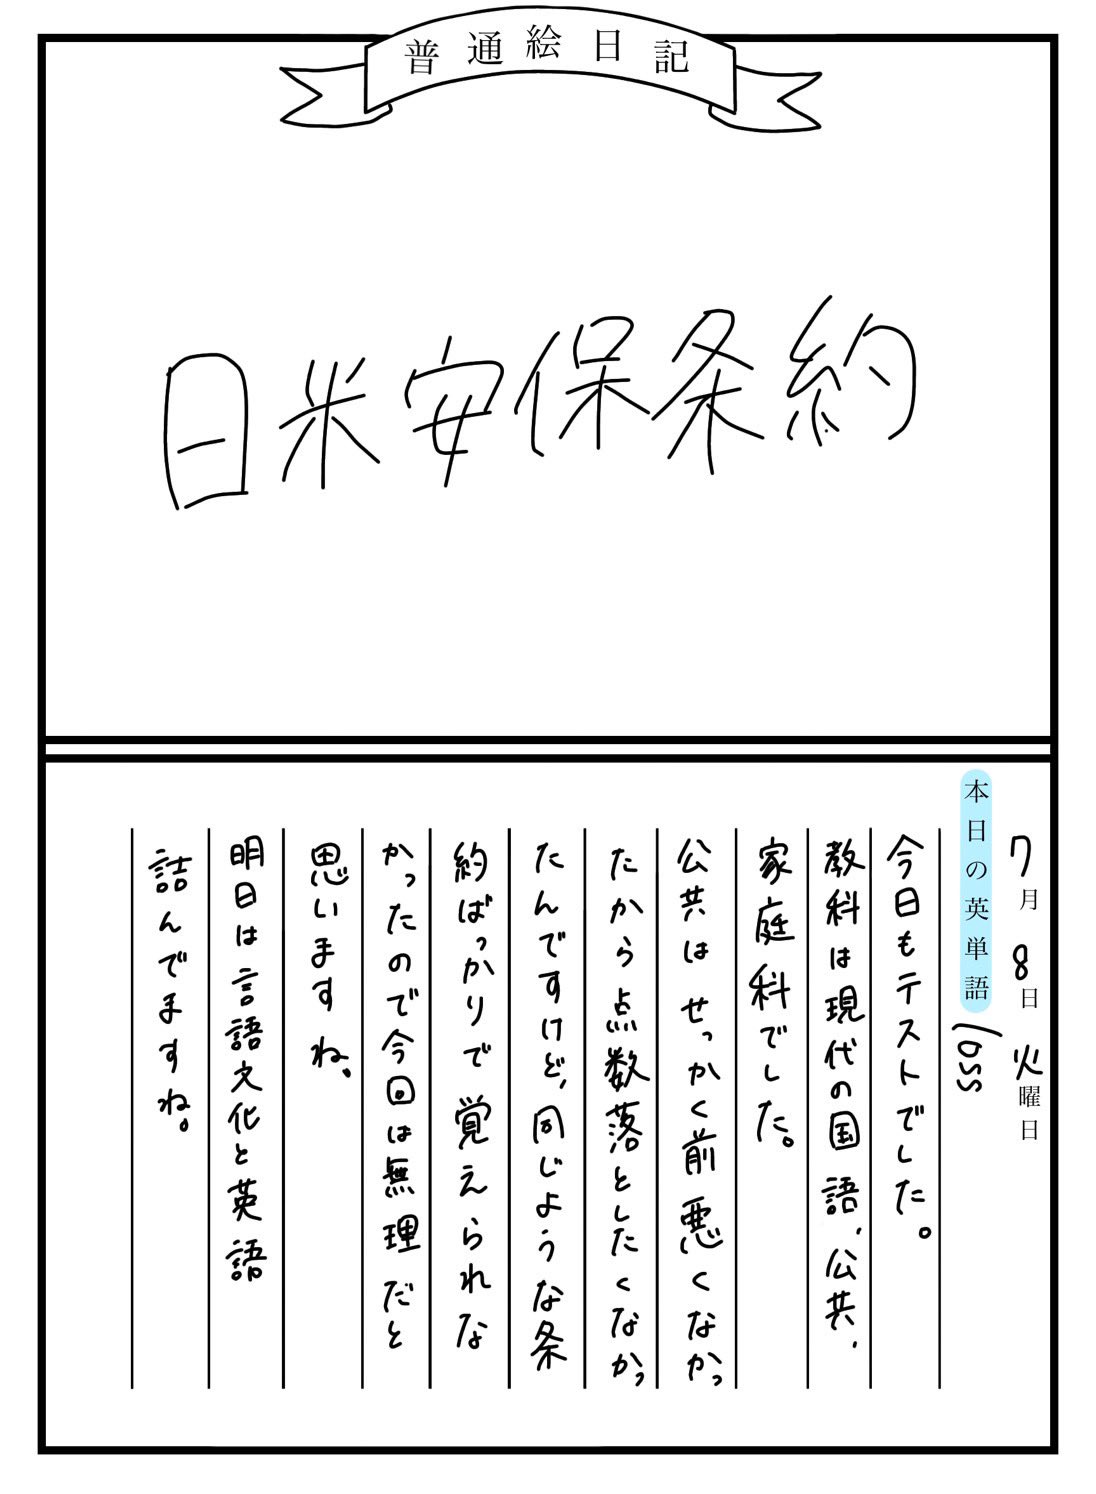 普通絵日記
日米安保条約
7月8日火曜日
本日の英単語 loss
今日もテストでした。
教科は現代の国語、公共、
家庭科でした。
公共はせっかく前悪くなかっ
たから点数落としたくなかっ
たんですけど、同じような条
約ばっかりで覚えられな
かったので今回は無理だと
思いますね。
明日は言語文化と英語
詰んでますね。